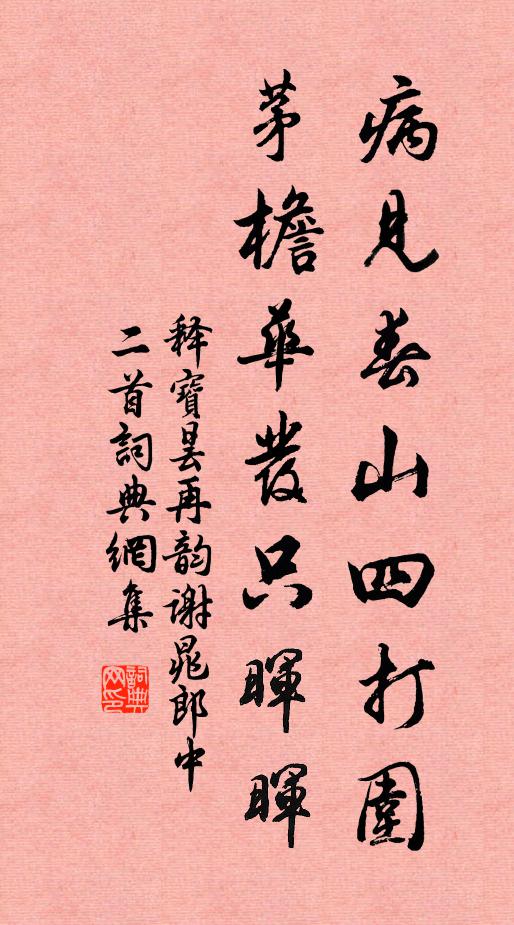 病見春山四打圍
茅檐華發只暉暉
釋寶昙再韵謝晁郎中
二首詞典網集
詞典
网印